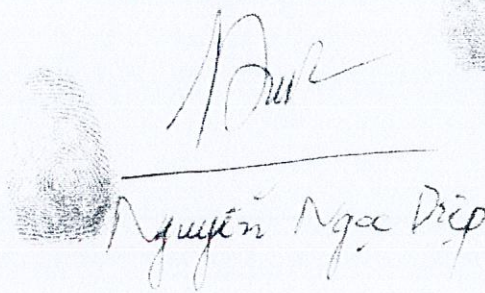 Nguyễn Ngọc Diệp